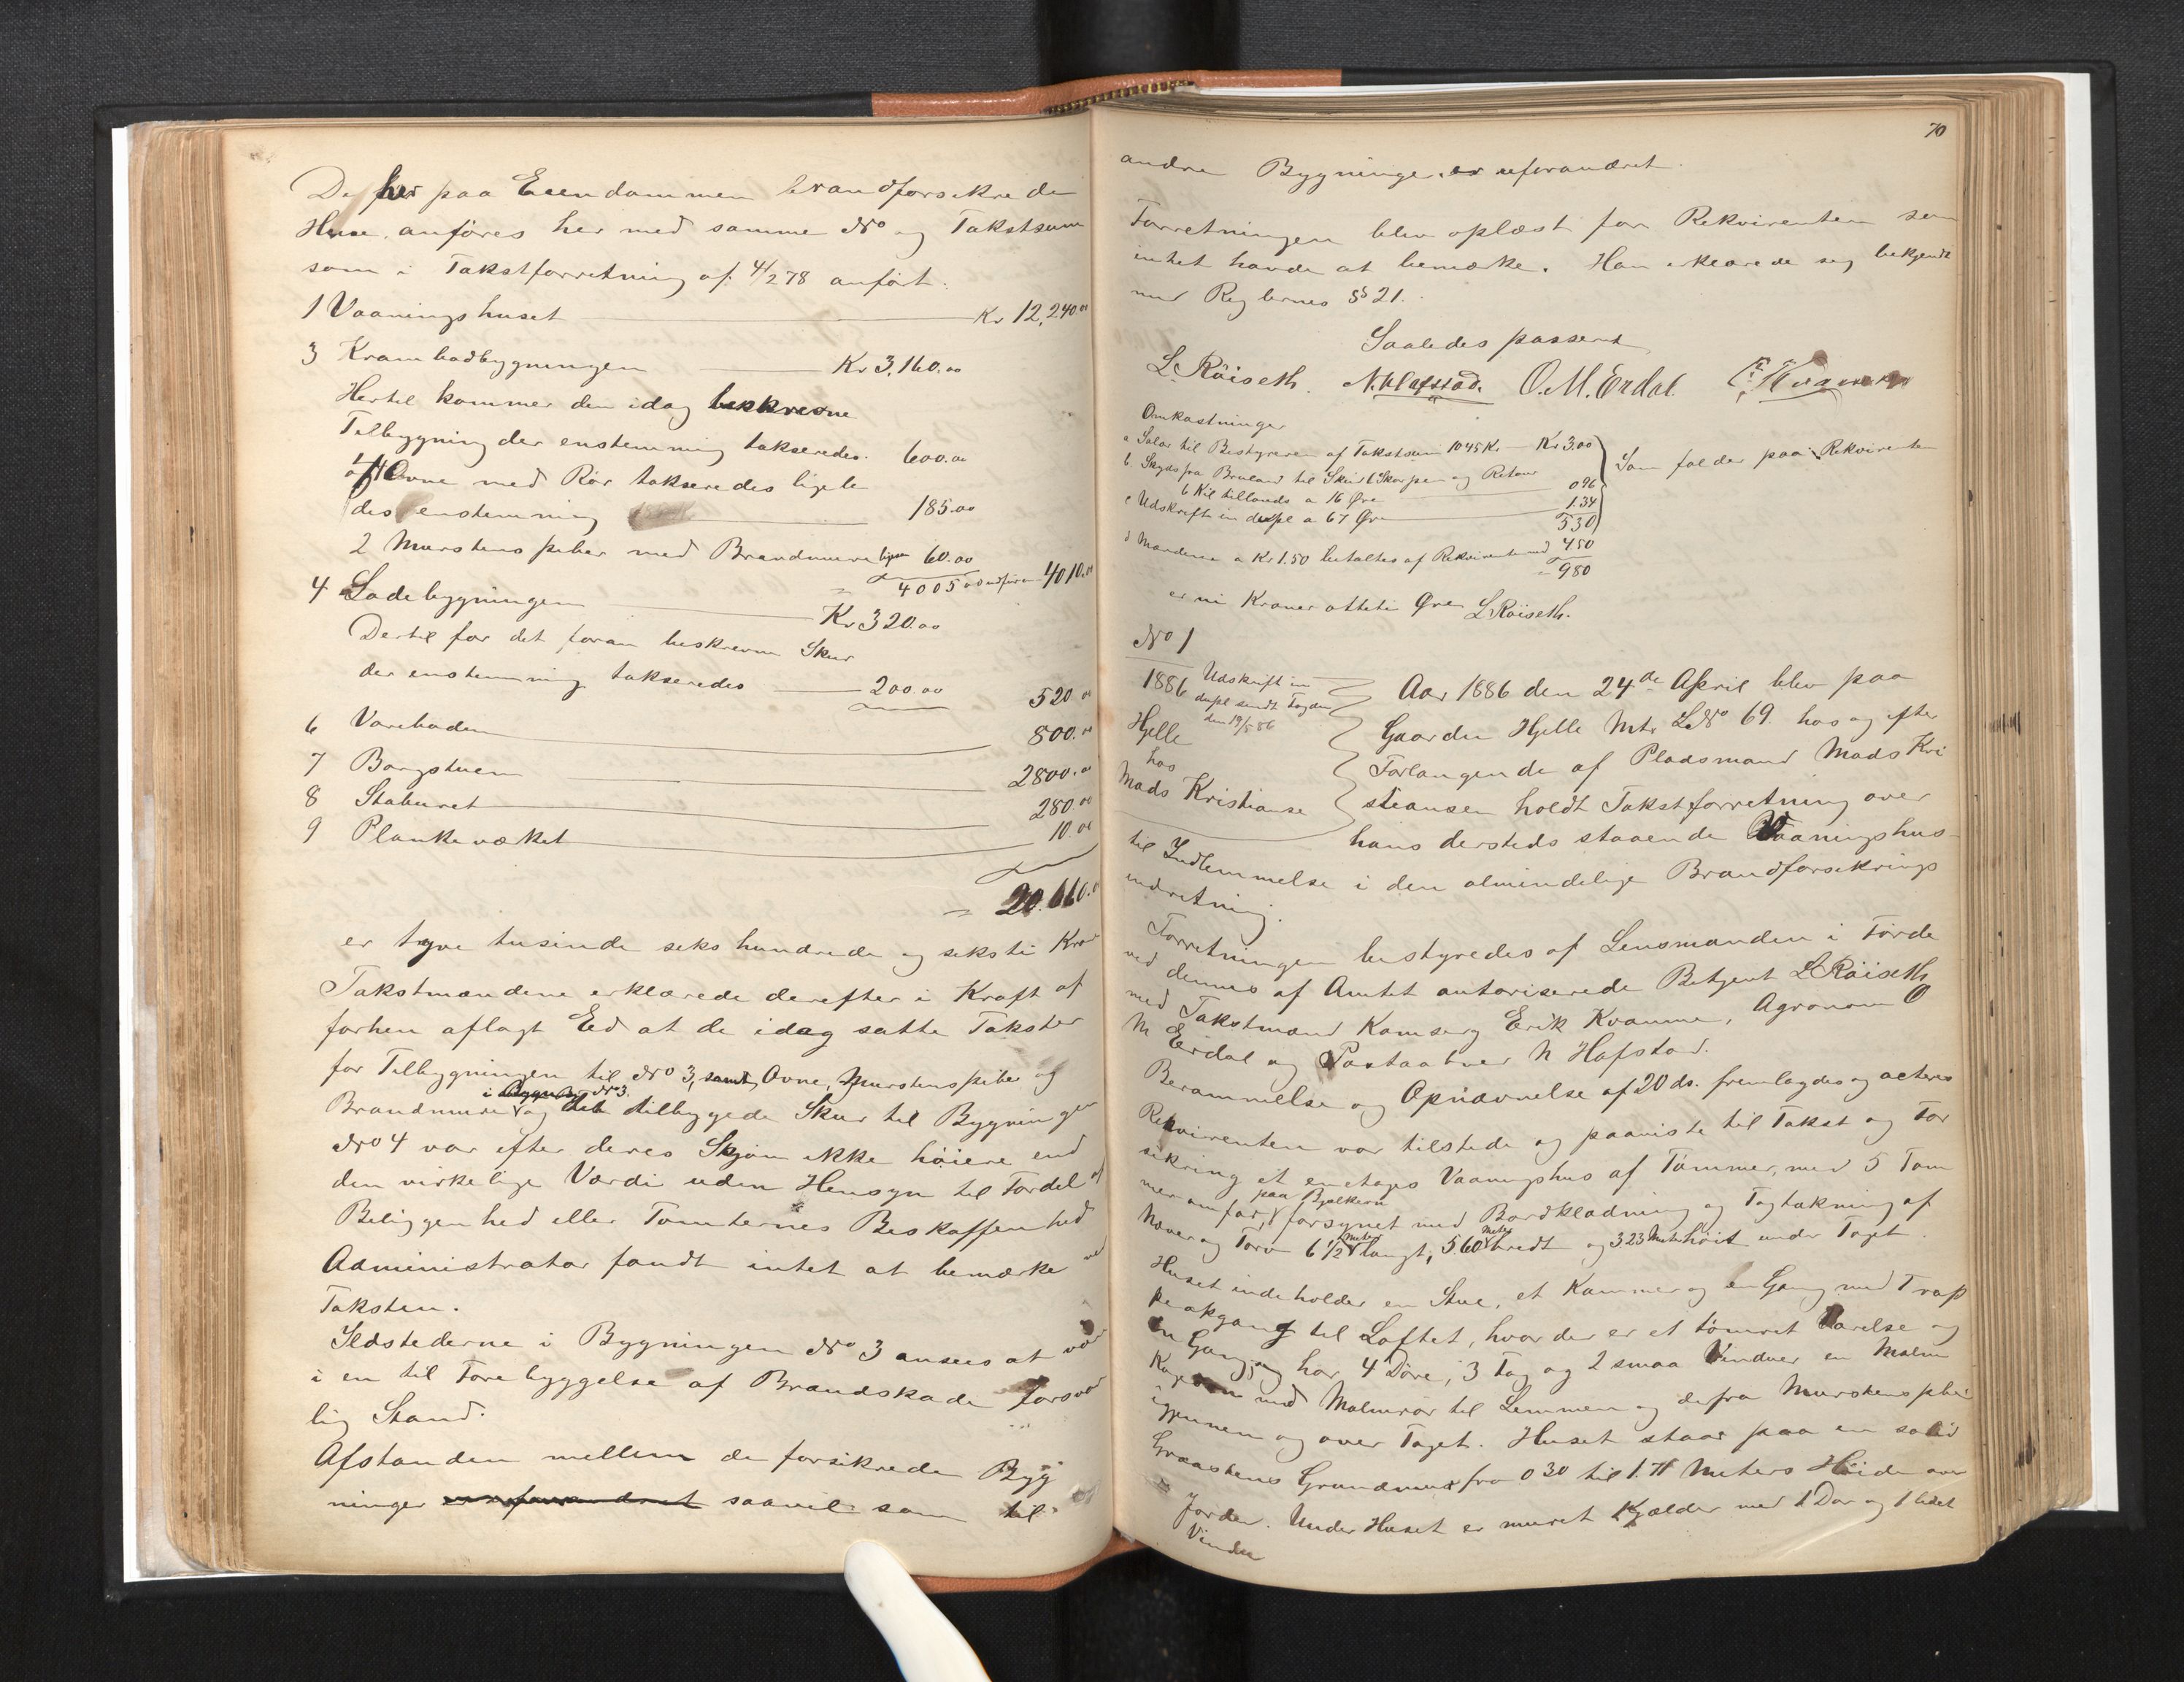 De her paa Eiendommen brandforsikrede
Huse anføres her med samme No og Takstsum
som i Takstforretning af 4/2 78 anført.
1 Vaaningshuset Kr 12,240.00
3 Krambodbygningen Kr 3,160.00
Hertil kommer den idag beskrevne
Tilbygning der enstemmig takseredes 600.00
Ovne med Rør takseredes ligele
des enstemmig 185.00
2 Murstens piber med Brandmure 60.00
= 4005.00 4010.00
4 Ladebygningen Kr 320.00
Dertil for det foran beskrevne Skur
der enstemmig takseredes 200.00 520.00
6 Vareboden 800.00
7 Borgstuen 2800.00
8 Staburet 280.00
9 Plankeværket 10.00
= 20.660.00
er tyve tusinde seks hundrede og seksti Kro
Takstmændene erklærede derefter i Kraft af
forhen aflagt Ed at de idag satte Takster
for Tilbygningen til No 3, samt Ovne, Murstenspiber og
i Bygning No 3.
Brandmure og det tilbyggede Skur til Bygningen
No 4 var efter deres Skjøn ikke høiere end
den virkelige Værdi uden Hensyn til Fordel af
Beliggenhed eller Tomternes Beskaffenhed
Administrator fandt intet at bemærke ved
Taksten.
Ildstederne i Bygningen No 3 ansees at være
i en til Forebyggelse af Brandskade forsvar
lig Stand.
Afstanden mellem de forsikrede Byg
ninger er uforandret saavel som til
70
andre Bygninger er uforandret.
Forretningen blev oplæst for Rekvirenten som
intet havde at bemærke. Han erklærede sig bekjendt
med Reglernes § 21.
Saaledes passeret
L. Røiseth. N. Hafstad. O. M. Erdal.
Omkostninger
a Salær til Bestyreren af Takstsum 1045 Kr Kr 3.00
b. Skyds fra Bruland til Skei og Retour
6 Kil tillands a 16 Øre 096
c Udskrift in dupl a 67 Øre 1.34
530
Som falder paa Rekvirenten
d Mændene a Kr 1.50 betaltes af Rekvirenten med 450
= 980
er ni Kroner otteti Øre L Røiseth.
No 1
1886
Udskrift in
dupl sendt Fogden
den 19/5 86
Hjelle
hos
Mads Kristianse
Aar 1886 den 24de April blev paa
Gaarden Hjelle Mtr LNo 69. hos og efter
Forlangende af Pladsmand Mads Kri
stiansen holdt Takstforretning over
hans dersteds staaende Vaaningshus
til Indlemmelse i den almindelige Brandforsikrings
indretning.
Forretningen bestyredes af Lensmanden i Førde
ved dennes af Amtet autoriserede Betjent L Røiseth
med Takstmænd Kamserg Erik Kvamme, Agronom O
M Erdal og Postaabner N Hafstad.
Berammelse og Opnævnelse af 20 ds. fremlagdes og acteres
Rekvirenten var tilstede og paaviste til Takst og For
sikring et enetages Vaaningshus af Tømmer, med 5 Tøm
paa Bjelkern
meromfar, forsynet med Bordklædning og Tagtækning af
Næver og Torv 6 1/2 Meter langt, 5.60 Meter bredt og 3.23 Meter høit under Taget.
Huset indeholder en Stue, et Kammer og en Gang med Trap
peopgang til Loftet, hvor der er et tømret Værelse og
en Gang, og har 4 Døre, 3 Fag og 2 smaa Vinduer en Malm
med Malmrør til Lemmen og defra Murstenspibe
igjennem og over Taget. Huset staar paa en solid
Graastens Grundmur fra 0 30 til 1.71 Meters Høide over
Jorden. Under Huset er muret Kjælder med 1 Dør og 1 lidet
Vindu